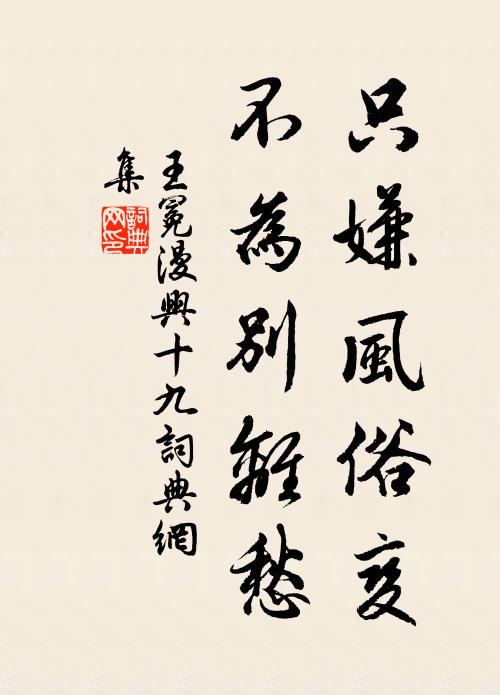 只嫌風俗変
不為別離愁
王冕漫興十九詞典網
集
詞典网印